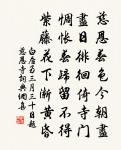 慈恩春色今朝盡
盡日徘徊倚寺門
惆悵春歸留不得
紫藤花下漸黃昏
白居易三月三十日題
慈恩寺詩與個喜